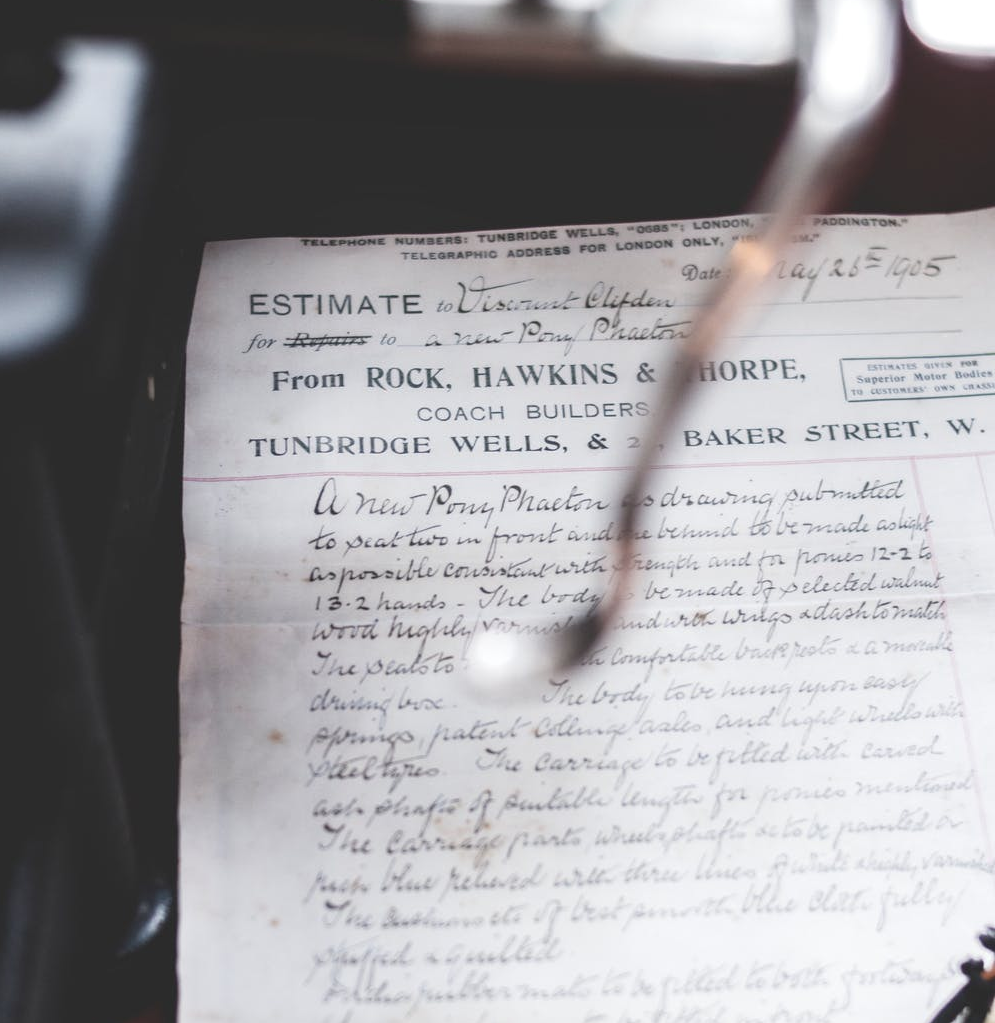 TELEPHONE NUMBERS: TUNBRIDGE WELLS, "0685"; LONDON, PADDINGTON."
TELEGRAPHIC ADDRESS FOR LONDON ONLY,
Date May 26th 1905
ESTIMATE to Viscount Clifden
for Repairs to a new Pony Phaeton
From ROCK, HAWKINS & THORPE,
ESTIMATES GIVEN FOR
Superior Motor Bodies
TO CUSTOMERS' OWN CHASSIS
COACH BUILDERS,
TUNBRIDGE WELLS, & BAKER STREET, W.
A new Pony Phaeton as drawing submitted
to seat two in front and one behind to be made as light
as possible consistent with strength and for ponies 12-2 to
13-2 hands - The body to be made of selected walnut
wood highly varnished and with wings & dash to match
The seats to comfortable back rests & a moveable
driving box. The body to be hung upon easy
springs, patent Collinge axles, and light wheels with
steel tyres. The carriage to be fitted with carved
ash shafts of suitable length for ponies mentioned
The carriage parts wheels, shafts &c to be painted a
rich blue relieved with three lines of white & highly varnished
The cushions etc of best smooth blue cloth fully
stuffed & quilted
rubber mats to be fitted to both footways